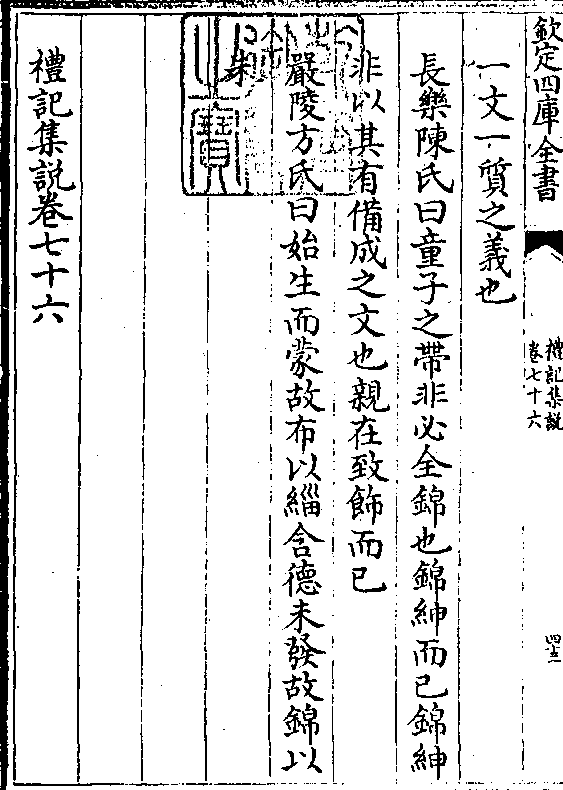 欽定四庫全書
禮記集說
卷七十六
一文一質之義也
長樂陳氏曰童子之帶非必全錦也錦紳而已錦紳
非以其有備成之文也親在致飾而已
嚴陵方氏曰始生而蒙故布以緇含德未發故錦以
朱
禮記集說卷七十六